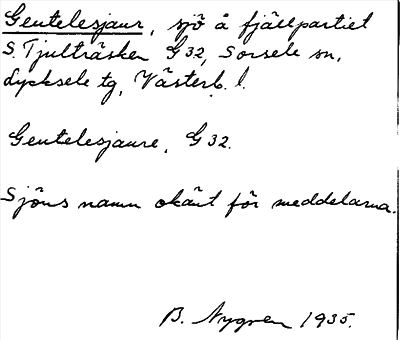 Geutelesjaur, sjö å fjällpartiet
S. Tjulträsken G 32, Sorsele sn,
Lycksele tg, Västerb. l.
Geutelesjaure, G 32.
Sjöns namn okänt för meddelarna.
B. Nygren 1935.